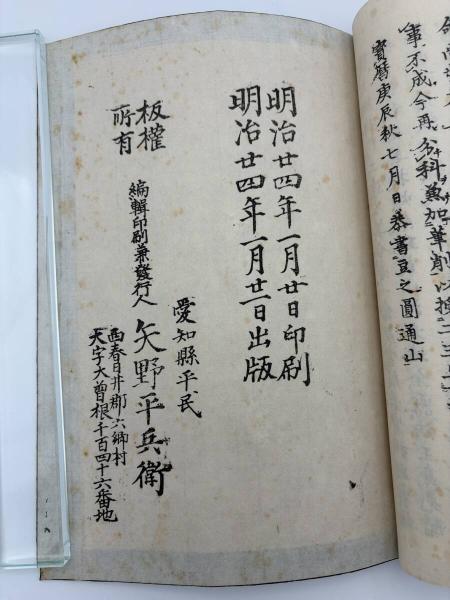 事不成今再分科兼加筆削以授二三
寶暦庚辰秋七月日恭書豆之圓通山
明治廿四年一月廿日印刷
明治廿四年一月廿一日出版
愛知縣平民
板權
所有
編輯印刷兼發行人 矢野平兵衛
西春日井郡六郷村
大字大曽根千百四十六番地